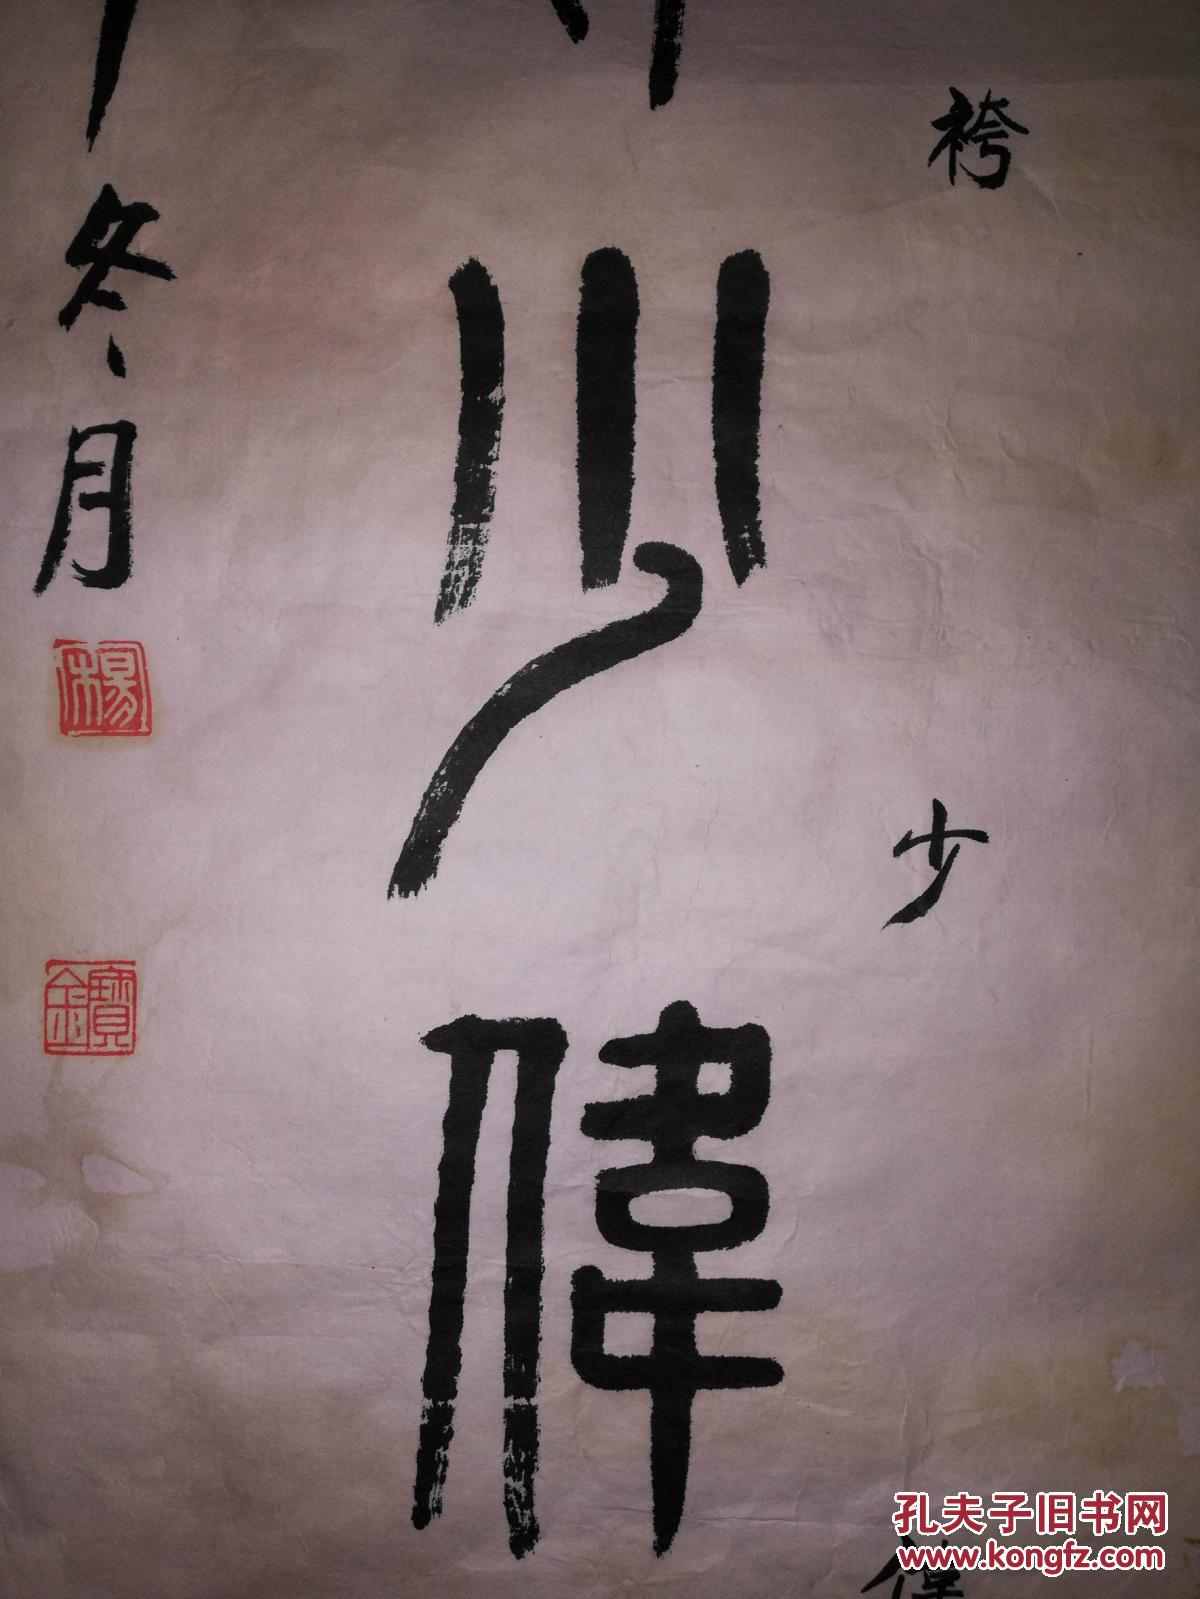 袴
少
偉
少偉
冬月
楊
寶金
孔夫子旧书网
www.kongfz.com